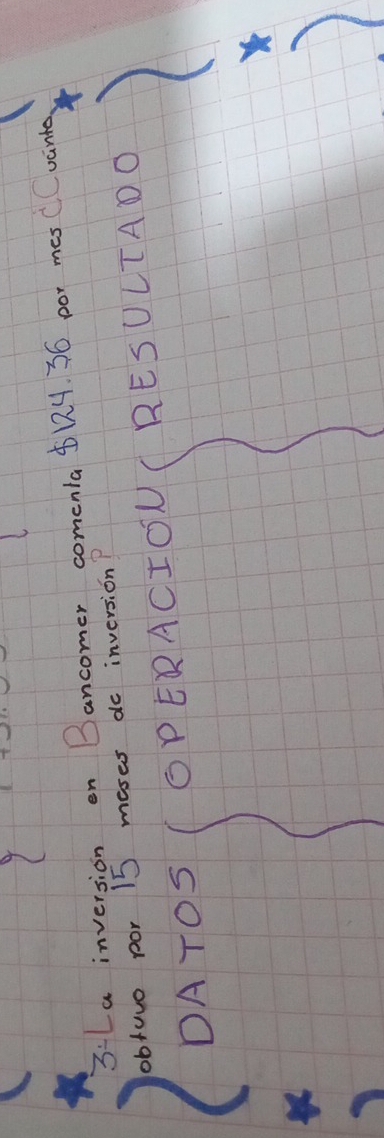 3.- La inversión en Bancomer comenta $124.36 por mes ¿Cuánto
obtuvo por 15 meses de inversión?
DATOS OPERACIÓN RESULTADO